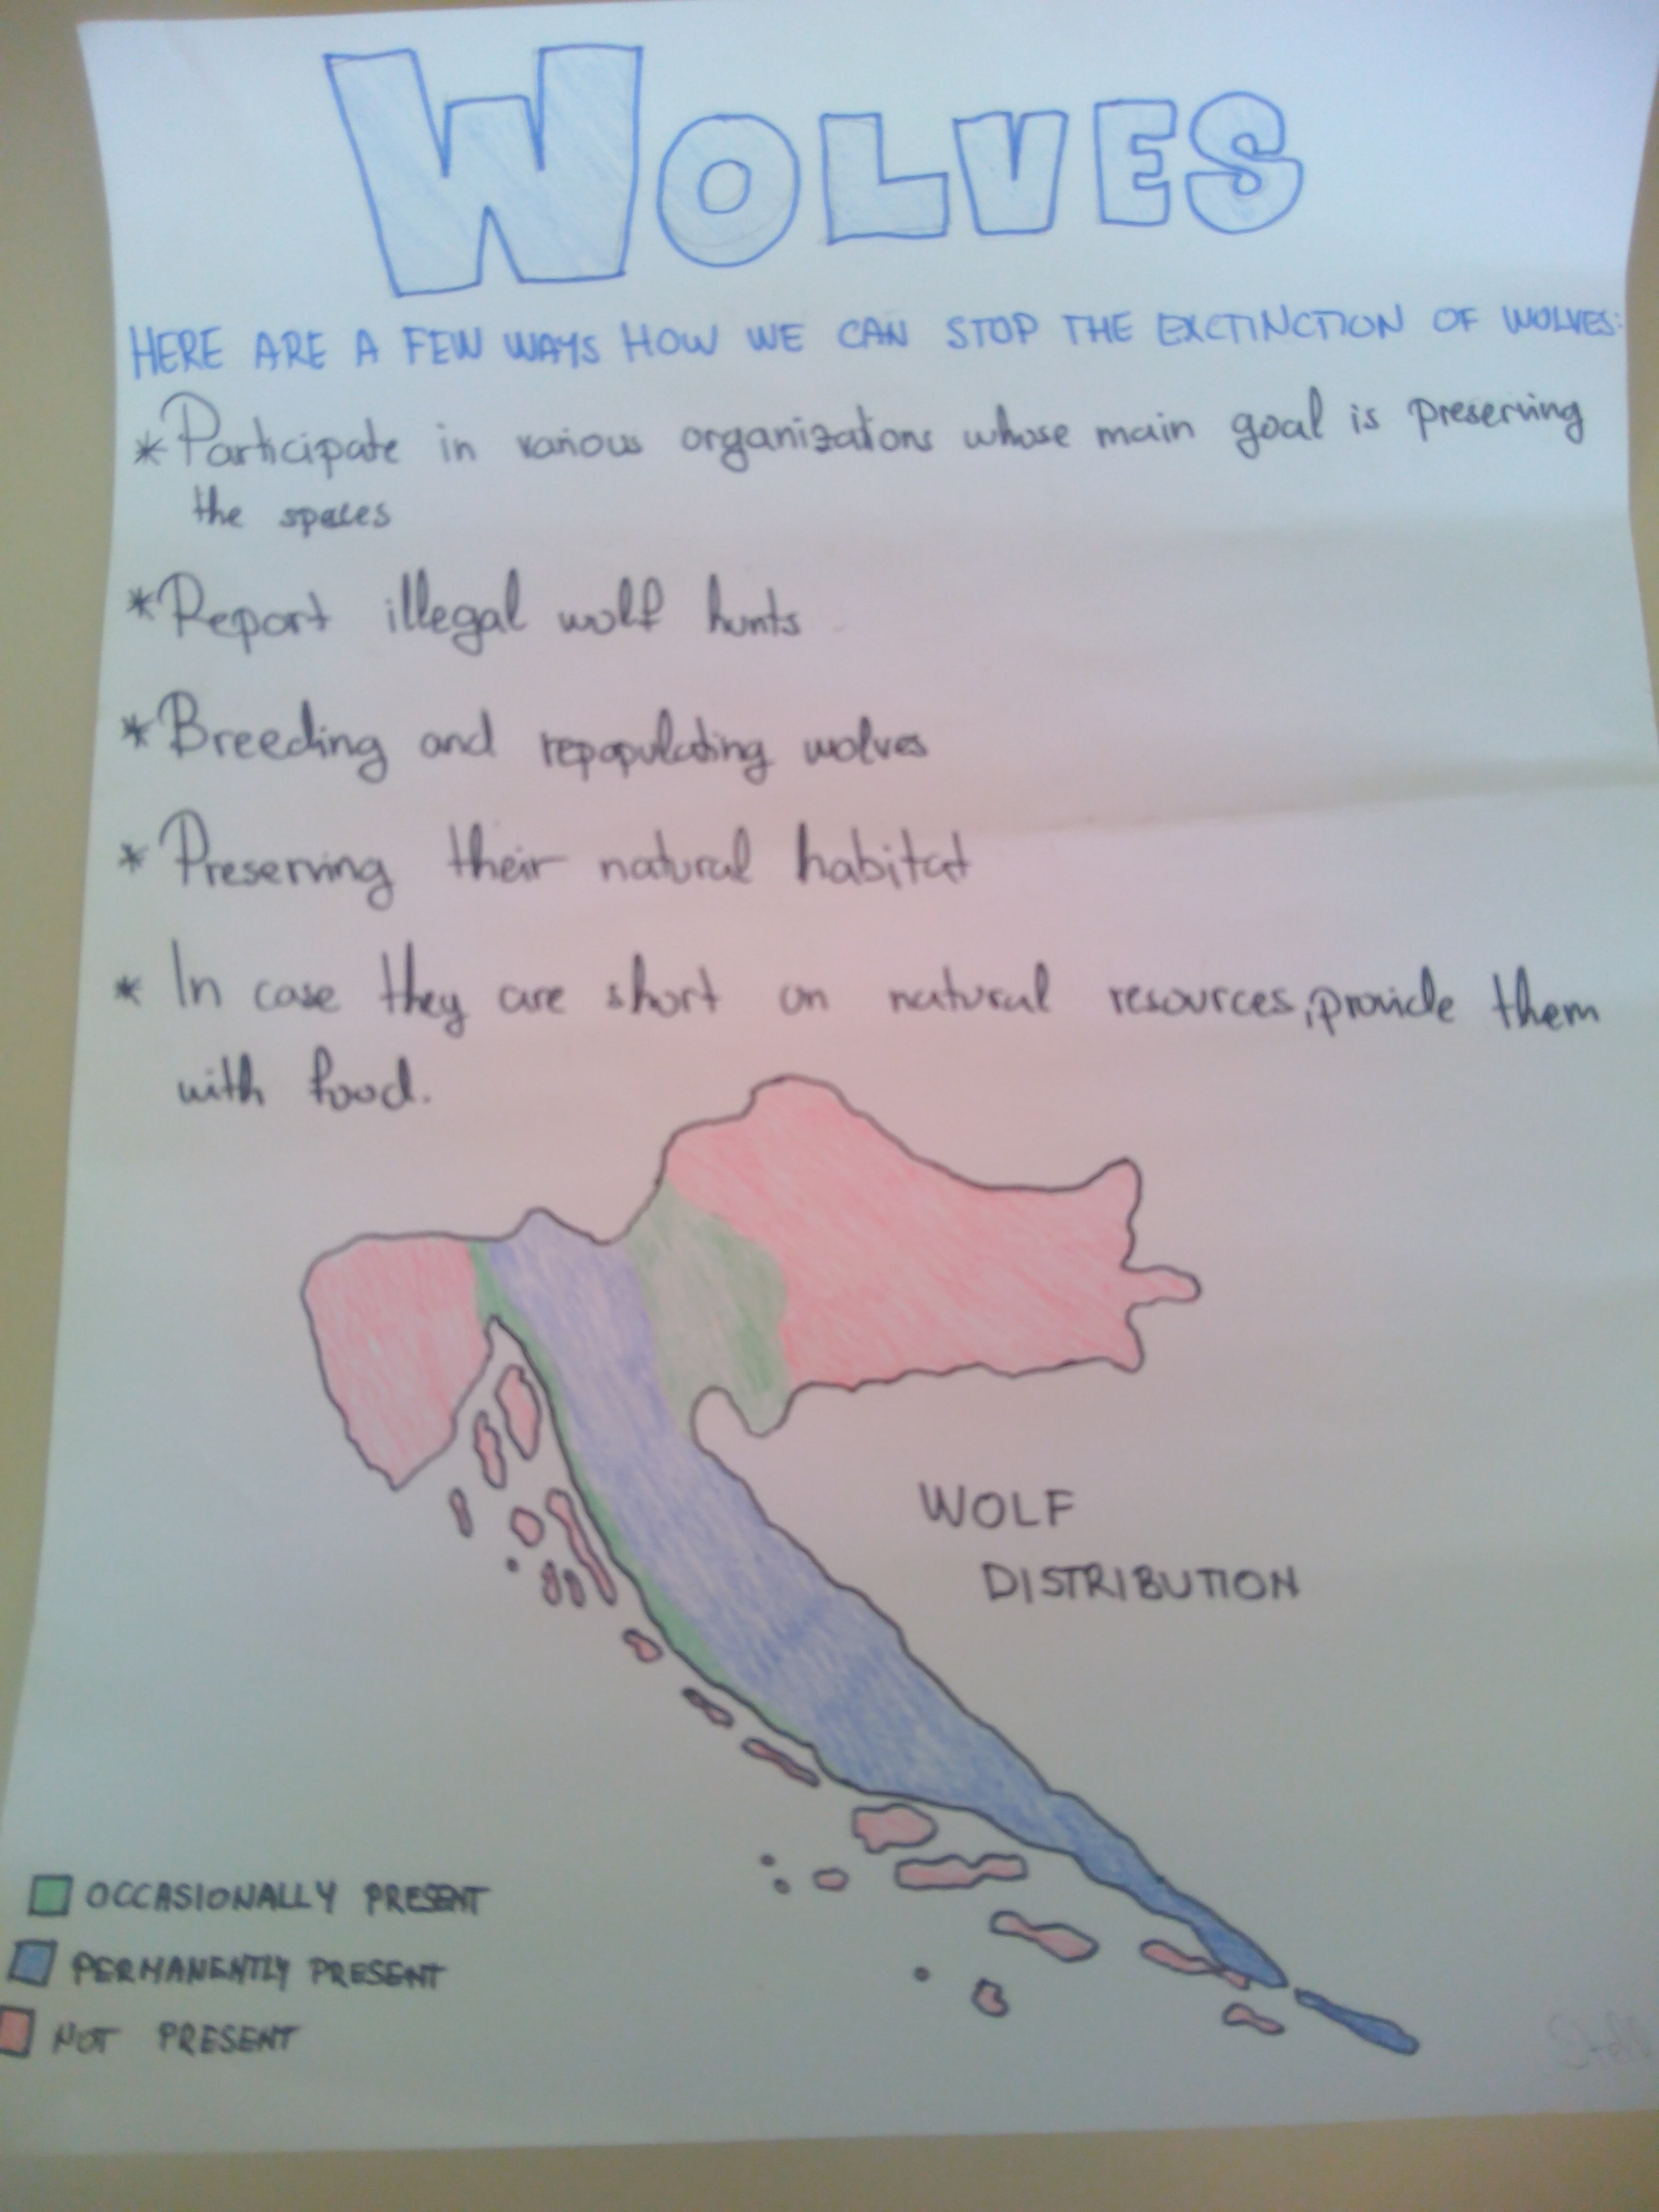 WOLVES
HERE ARE A FEW WAYS HOW WE CAN STOP THE EXCTINCTION OF WOLVES:
* Participate in various organizatons whose main goal is preserving
the speces
* Report illegal wolf hunts
* Breeding and repopulating wolves
* Preserving their natural habitat
* In case they are short on natural resources, provide them
with food.
WOLF
DISTRIBUTION
OCCASIONALLY PRESENT
PERMANENTLY PRESENT
NOT PRESENT